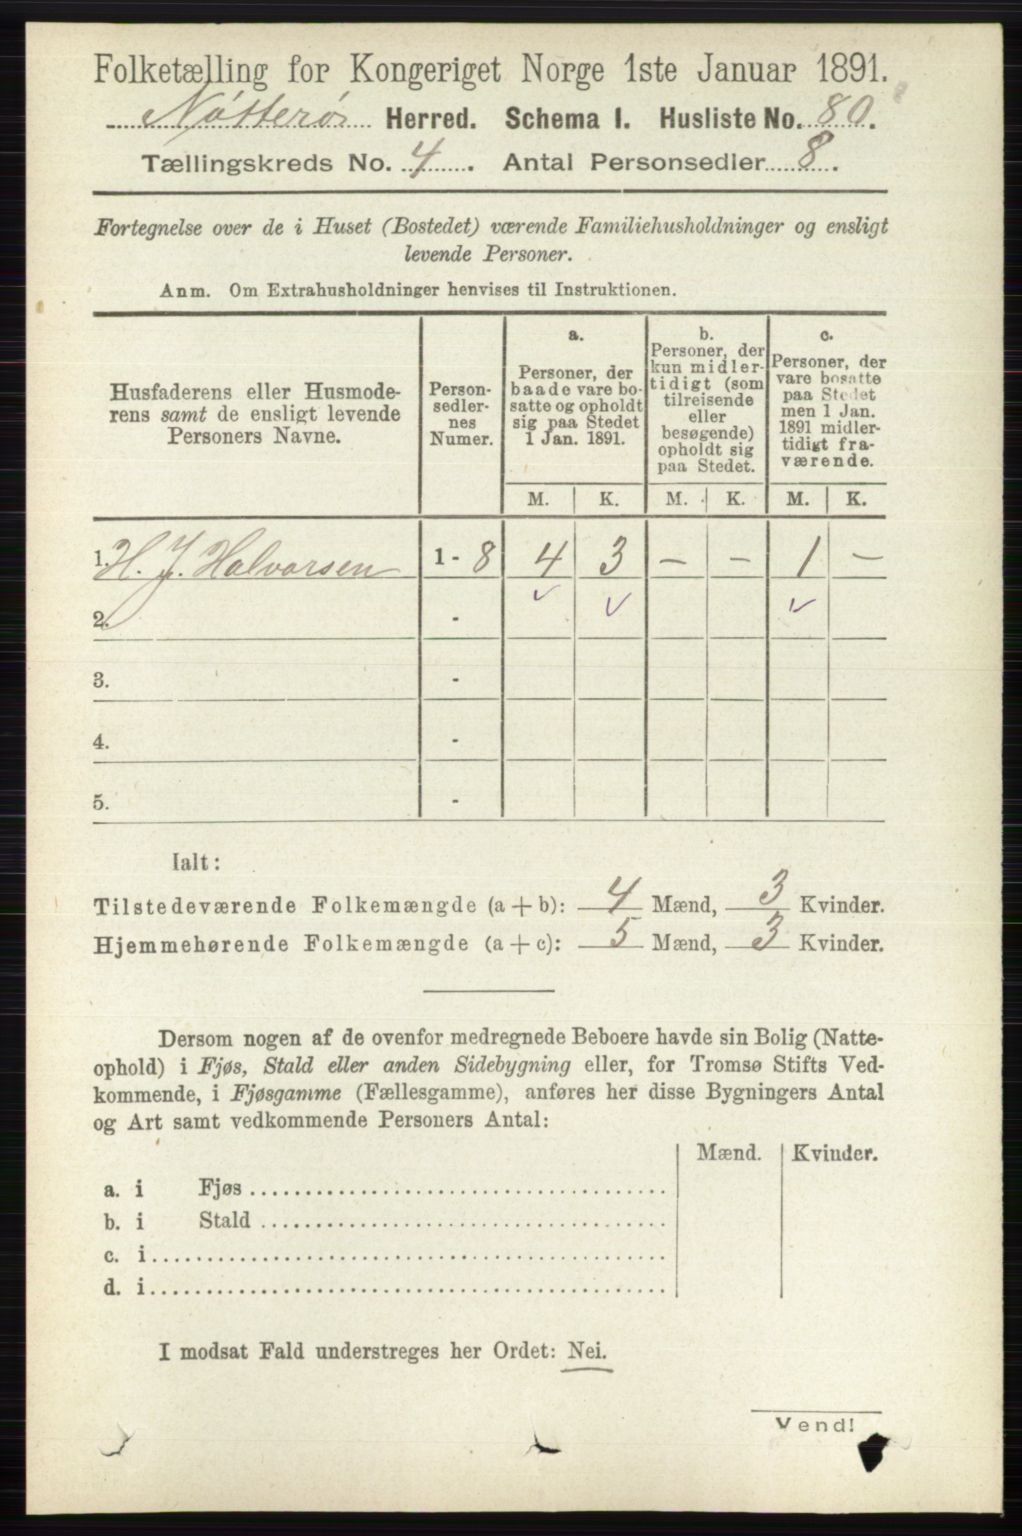 Folketælling for Kongeriget Norge 1ste Januar 1891.
Nøtterø Herred. Schema I. Husliste No. 80.
Tællingskreds No. 4. Antal Personsedler 8.
Fortegnelse over de i Huset (Bostedet) værende Familiehusholdninger og ensligt
levende Personer.
Anm. Om Extrahusholdninger henvises til Instruktionen.
Husfaderens eller Husmode-
rens samt de ensligt levende
Personers Navne.
Person-
sedler-
nes
Numer.
a.
Personer, der
baade vare bo-
satte og opholdt
sig paa Stedet
1 Jan. 1891.
b.
Personer, der
kun midler-
tidigt (som
tilreisende
eller
besøgende)
opholdt sig
paa Stedet.
c.
Personer, der
vare bosatte
paa Stedet
men 1 Jan.
1891 midler-
tidigt fra-
værende.
M. K. M. K. M. K.
1. H. J. Halvorsen 1 - 8 4 3 - - 1 -
2. -
3. -
4. -
5. -
Ialt:
Tilstedeværende Folkemængde (a + b): 4 Mænd, 3 Kvinder.
Hjemmehørende Folkemængde (a + c): 5 Mænd, 3 Kvinder.
Dersom nogen af de ovenfor medregnede Beboere havde sin Bolig (Natte-
ophold) i Fjøs, Stald eller anden Sidebygning eller, for Tromsø Stifts Ved-
kommende, i Fjøsgamme (Fællesgamme), anføres her disse Bygningers Antal
og Art samt vedkommende Personers Antal:
Mænd. Kvinder.
a. i Fjøs
b. i Stald
c. i
d. i
I modsat Fald understreges her Ordet: Nei.
Vend!